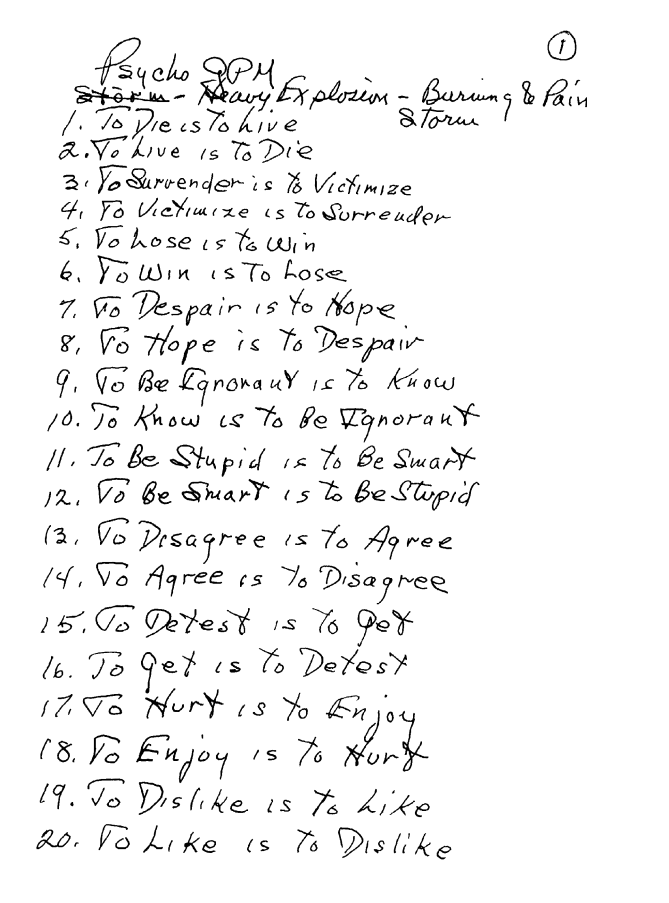 1
Psycho GPM
Storm - Heavy Explosion - Burning & Pain
Storm
1. To Die is To Live
2. To Live is To Die
3. To Surrender is to Victimize
4. To Victimize is to Surrender
5. To Lose is to Win
6. To Win is To Lose
7. To Despair is to Hope
8. To Hope is to Despair
9. To Be Ignorant is to Know
10. To Know is to Be Ignorant
11. To Be Stupid is to Be Smart
12. To Be Smart is to Be Stupid
13. To Disagree is to Agree
14. To Agree is to Disagree
15. To Detest is to Get
16. To Get is to Detest
17. To Hurt is to Enjoy
18. To Enjoy is to Hurt
19. To Dislike is to Like
20. To Like is to Dislike